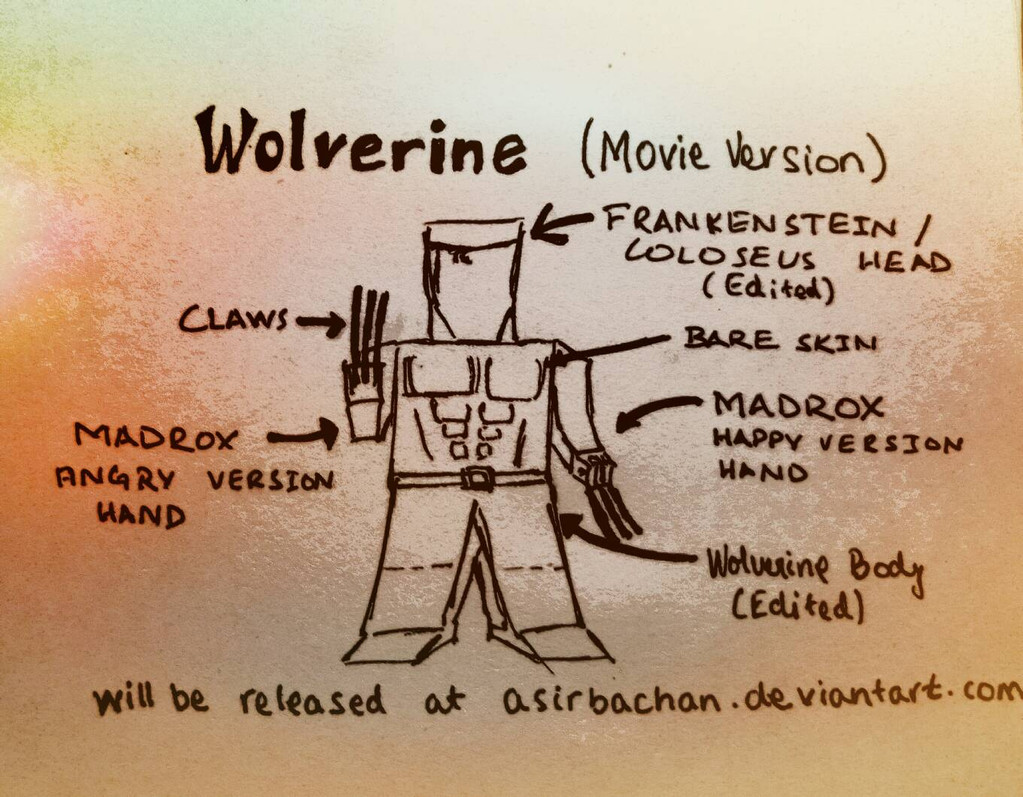 Wolverine (Movie Version)
FRANKENSTEIN /
COLOSEUS HEAD
(Edited)
CLAWS
BARE SKIN
MADROX
HAPPY VERSION
HAND
MADROX
ANGRY VERSION
HAND
Wolverine Body
(Edited)
will be released at asirbachan.deviantart.com